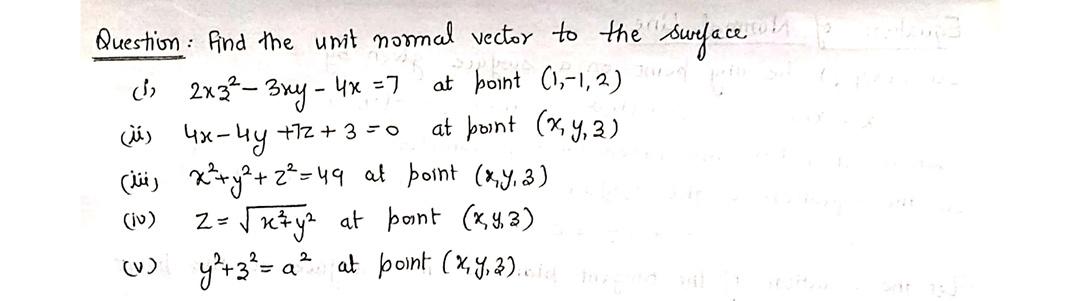 Question : Find the unit normal vector to the surface
(i) 2xz² - 3xy - 4x = 7 at point (1,-1, 2)
(ii) 4x - 4y + 7z + 3 = 0 at point (x, y, z)
(iii) x² + y² + z² = 49 at point (x, y, z)
(iv) z = √x²+y² at point (x, y, z)
(v) y² + z² = a² at point (x, y, z).